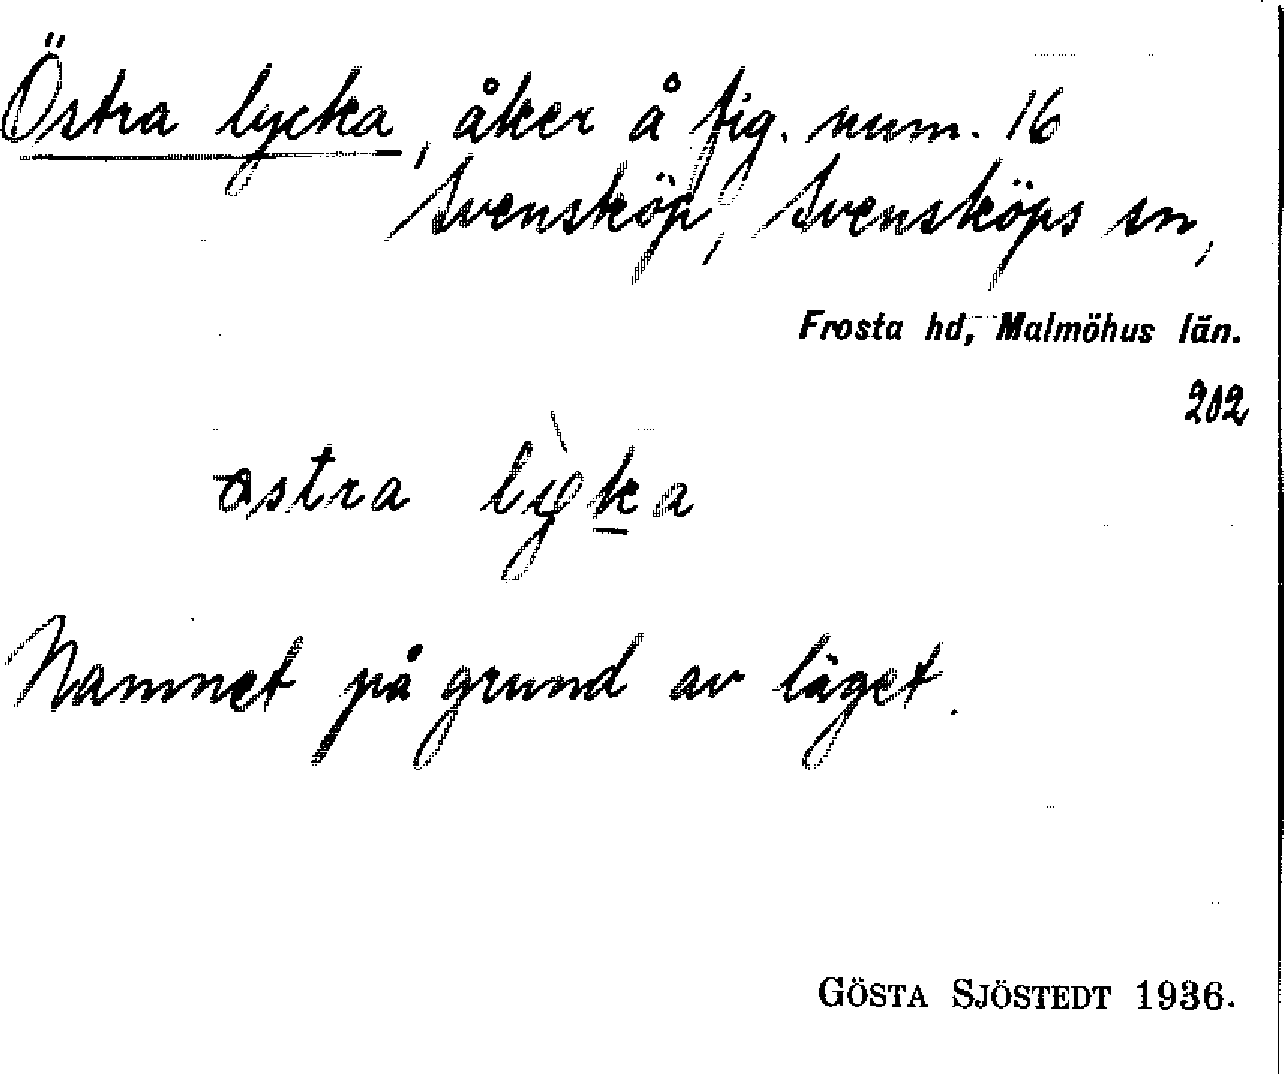 Östra lycka, åker å fig. num. 16
Svensköp, Svensköps sn,
Frosta hd, Malmöhus län.
202
Namnet på grund av läget.
GÖSTA SJÖSTEDT 1936.